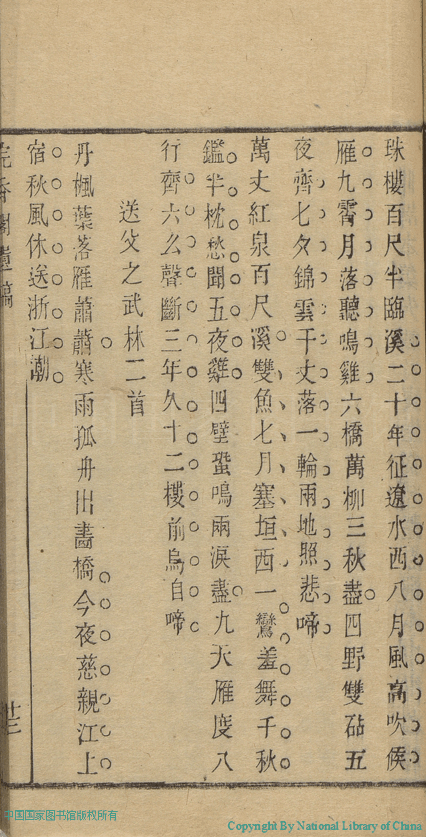 珠樓百尺半臨溪二十年征遼水西八月風高吹候
雁九霄月落聽鳴雞六橋萬柳三秋盡四野雙砧五
夜齊七夕錦雲千丈落一輪兩地照悲啼
萬丈紅泉百尺溪雙魚七月塞垣西一鸞羞舞千秋
鑑半枕愁聞五夜雞四壁蛩鳴兩淚盡九天雁度八
行齊六幺聲斷三年久十二樓前烏自啼
送父之武林二首
丹楓葉落雁蕭蕭寒雨孤舟出畵橋今夜慈親江上
宿秋風休送浙江潮
香閣遺稿
廿三
中国国家图书馆版权所有
Copyright By National Library of China